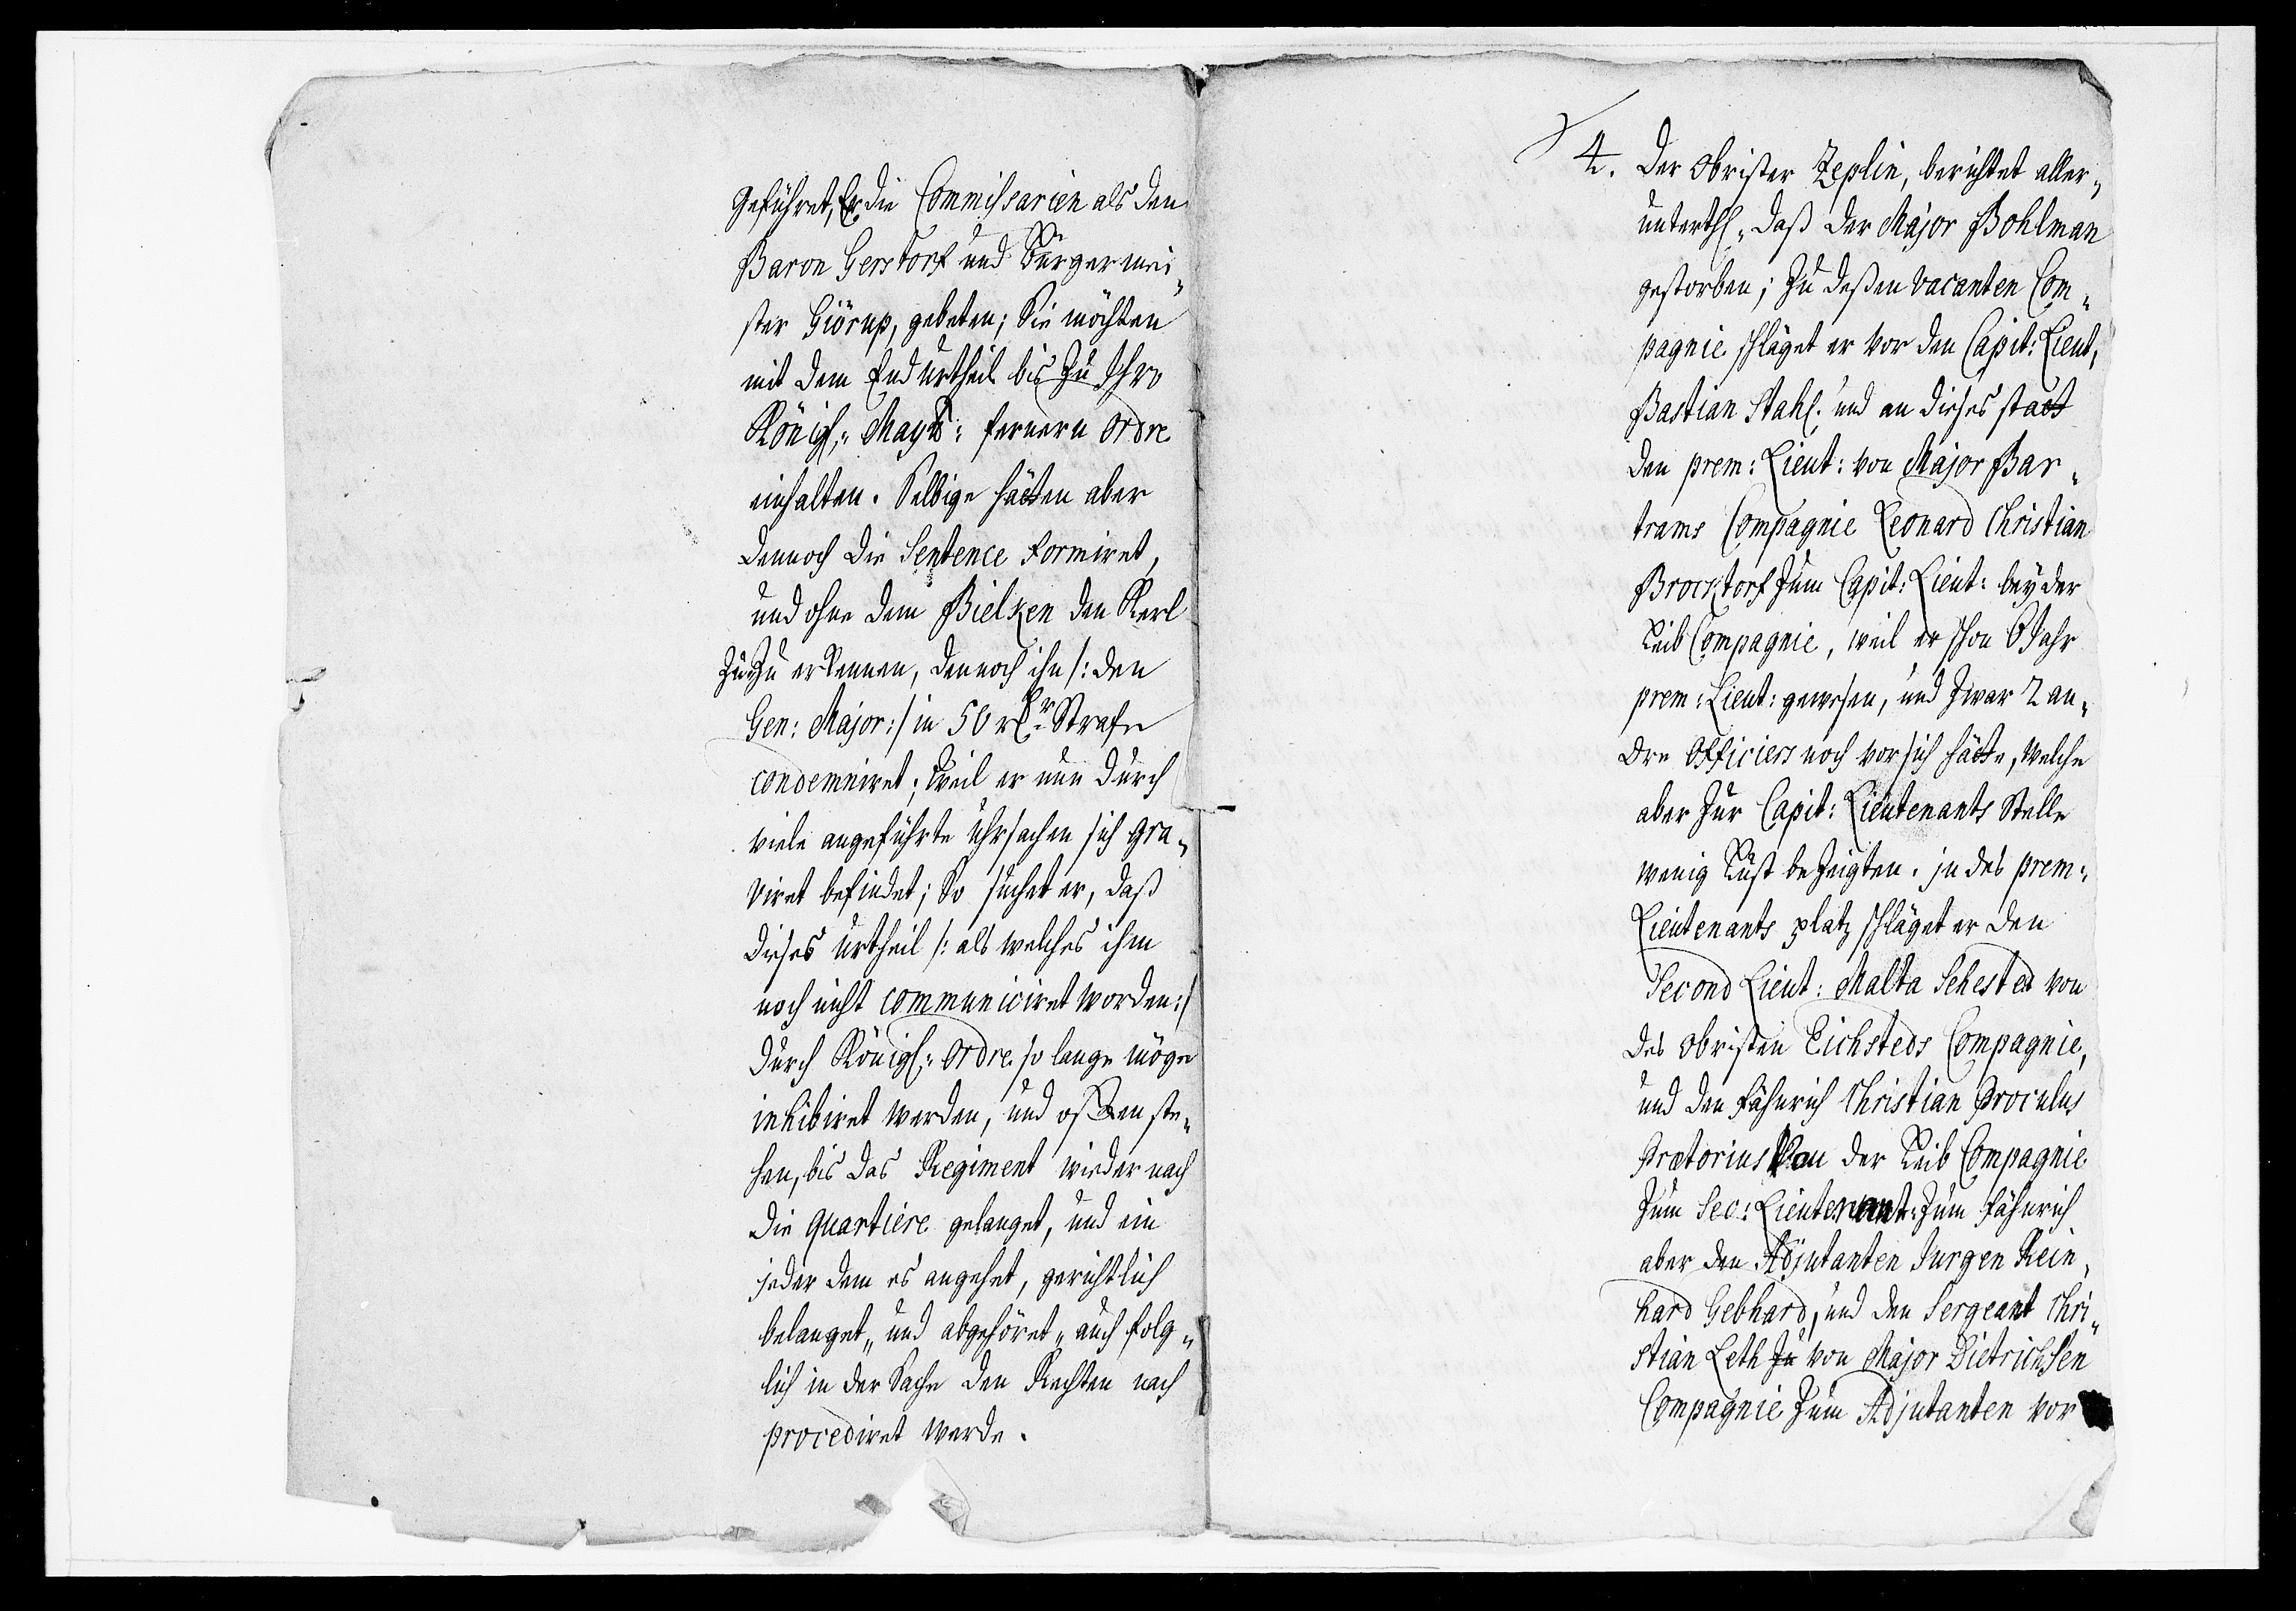 geführet, Er die Commissarien als den
Baron Gerstorf und Bürgermei„
ster Giörup, gebeten; Sie möchten
mit dem Endurtheil bis zu Ihro
Königl: Mayt: fernern Ordre
einhalten. Selbige hätten aber
dennoch die Sentence formiret,
und ohne dem Bielken den Kerl
zuzuerkennen, dennoch ihn /: den
Gen: Major :/ in 50 Strafe
condemniret; weil er nun durch
viele angeführte Uhrsachen sich gra„
viret befindet; So suchet er, daß
dieses Urtheil /: als welches ihm
noch nicht communiciret worden :/
durch Königl: Ordre so lange möge
inhibiret werden, und offen ste„
hen, bis das Regiment wieder nach
die Quartiere gelanget, und ein
jeder dem es angehet, gerichtlich
belanget„ und abgehöret„ auch folg„
lich in der Sache den Rechten nach
procediret werde.
4. Der Obrister Zeplin, berichtet aller„
unterth„ daß der Major Bohlman
gestorben; Zu deßen vacanten Com„
pagnie schläget er vor den Capit: Lieut,
Bastian Stahl; und an dieses statt
den prem: Lieut: von Major Bar„
trams Compagnie Leonard Christian
Brocktorf zum Capit: Lieut: bey der
Leib Compagnie, weil er schon 6 Jahr
prem: Lieut: gewesen, und zwar 2 an„
dre Officiers noch vor sich hätte, welche
aber zur Capit: Lieutenants Stelle
wenig Lust bezeigten. in des prem:
Lieutenants platz schläget er den
Second Lieut: Malta Sehested von
des Obristen Eichsteds Compagnie,
und den Fähnrich Christian Proculus
Prætorius von der Leib Compagnie
zum Sec: Lieutenant: zum Fähnrich
aber den Adjutanten Jurgen Rein„
hard Gebhard, und den Sergeant Chri„
stian Leth zu von Major Dietrichsen
Compagnie zum Adjutanten vor